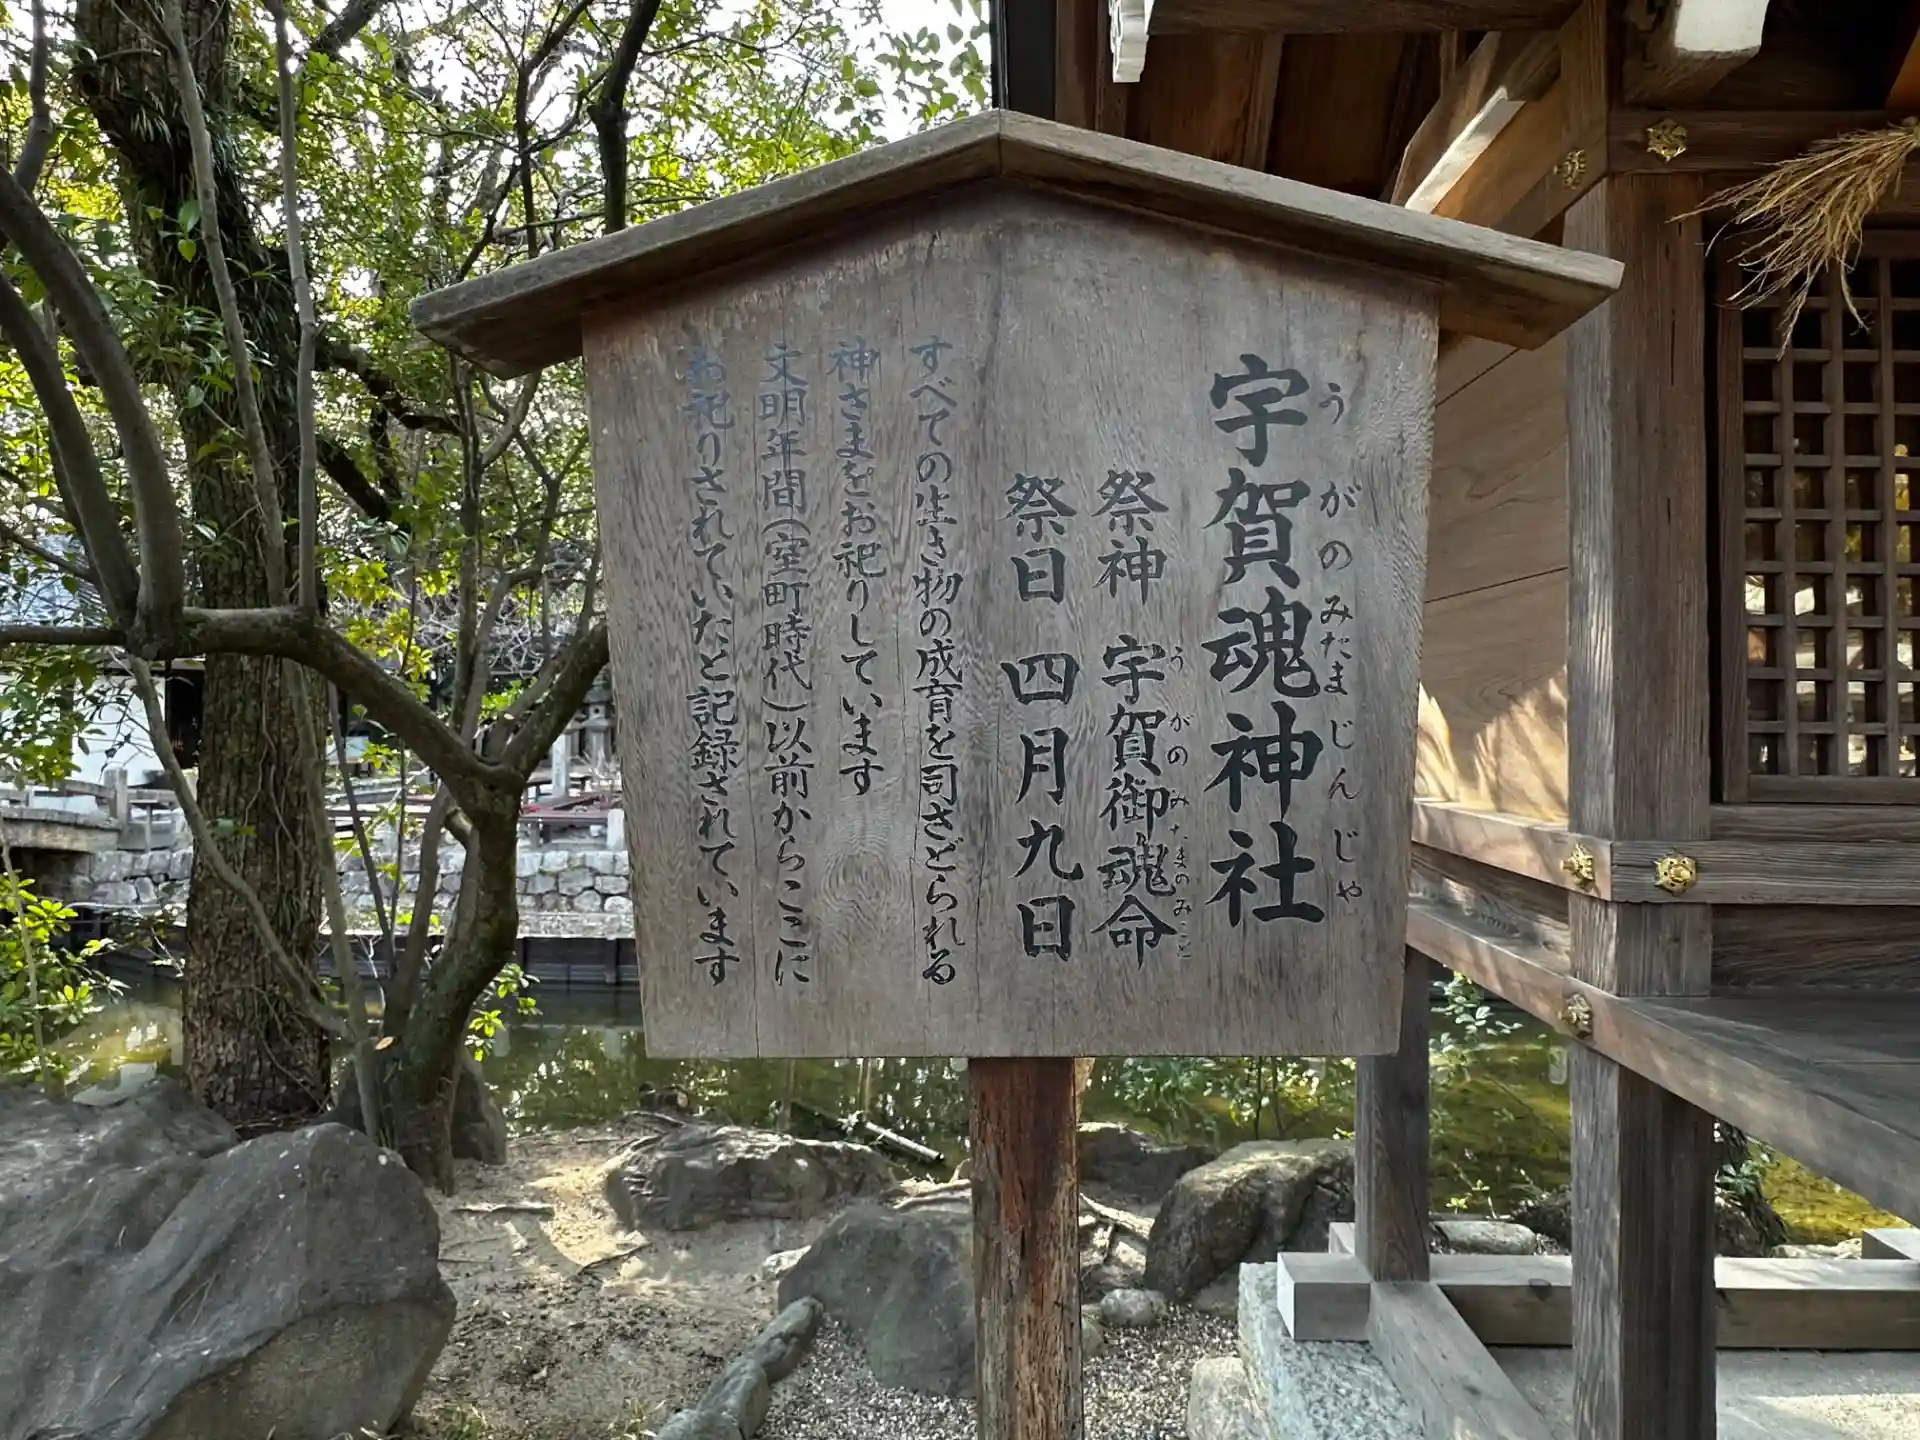 宇賀魂神社
うがのみたまじんじゃ
祭神 宇賀御魂命
うがのみたまのみこと
祭日 四月九日
すべての生き物の成育を司さどられる
神さまをお祀りしています
文明年間(室町時代)以前からここに
お祀りされていたと記録されています